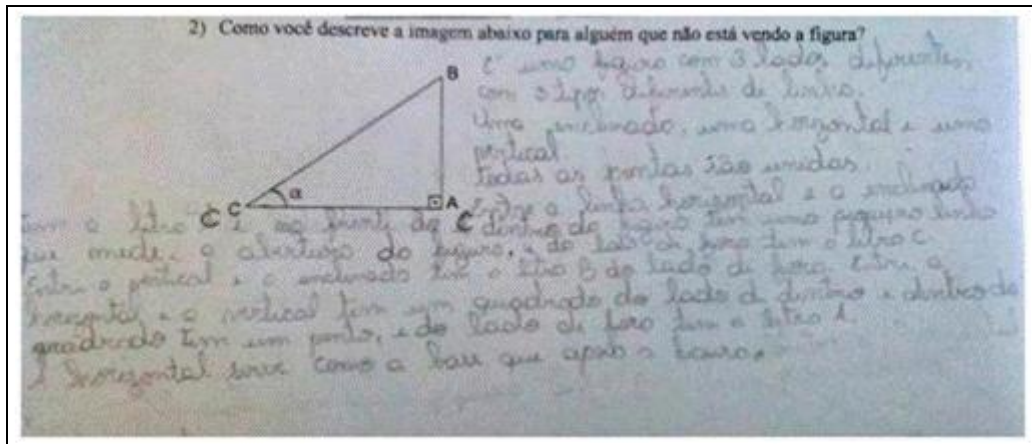 2) Como você descreve a imagem abaixo para alguém que não está vendo a figura?
É uma figura com 3 lados diferentes,
com 3 tipos diferente de linha.
Uma inclinada, uma horizontal e uma
vertical.
Todas as pontas são unidas.
B
α
C
A
C
C
Entre a linha horizontal e a inclinada
tem a letra C dentro da figura tem uma pequena linha
que mede a abertura da figura, e do lado de fora tem a letra C.
Entre a vertical e a inclinada tem a letra B do lado de fora. Entre a
horizontal e a vertical tem um quadrado do lado d dentro e dentro do
quadrado tem um ponto, e do lado de fora tem a letra A.
A horizontal serve como a base que apoia a